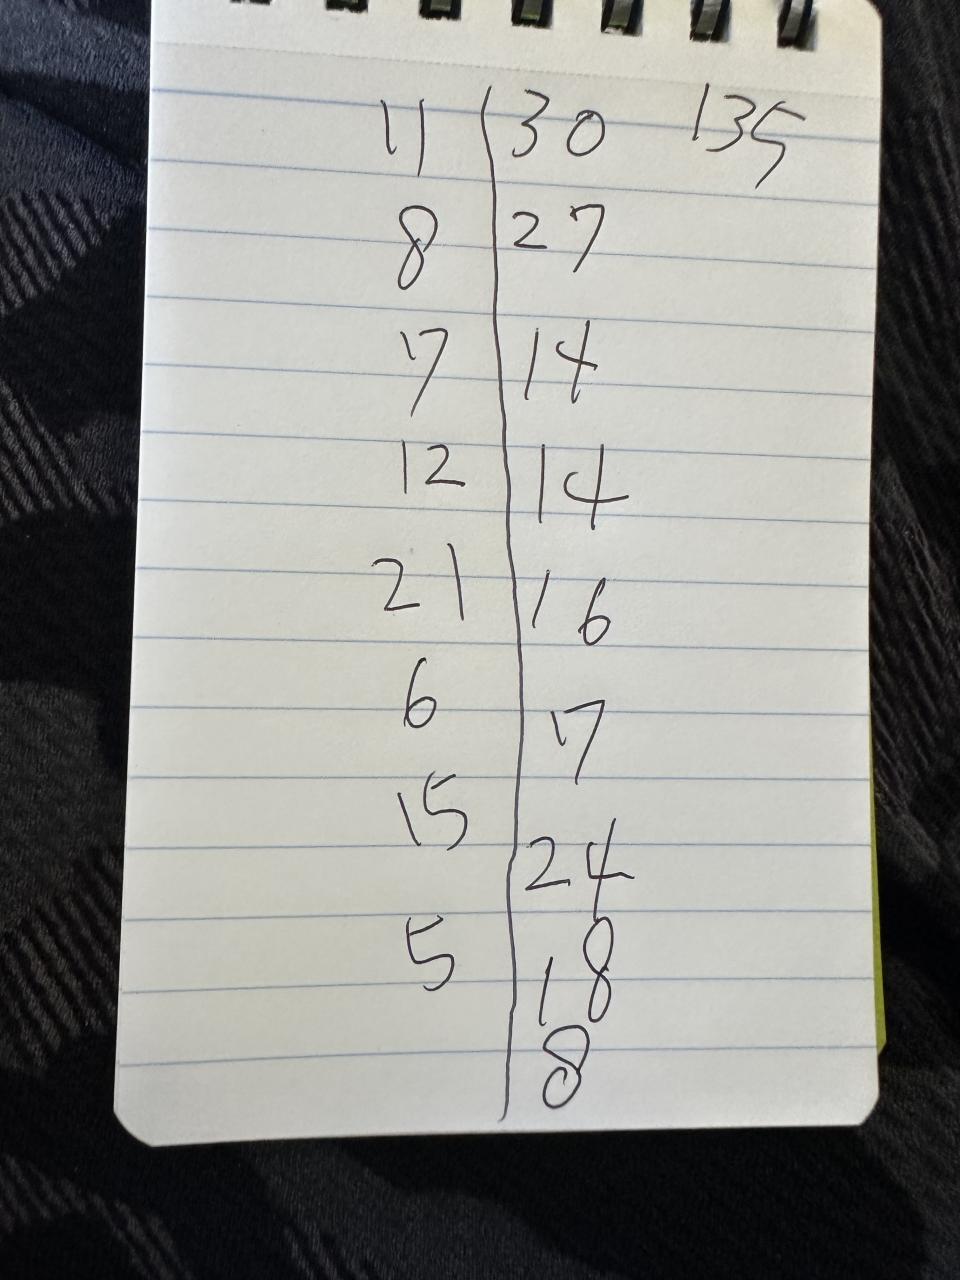 11 | 30 135
8 | 27
7 | 14
12 | 14
21 | 16
6 | 7
15 | 24
5 | 18
8